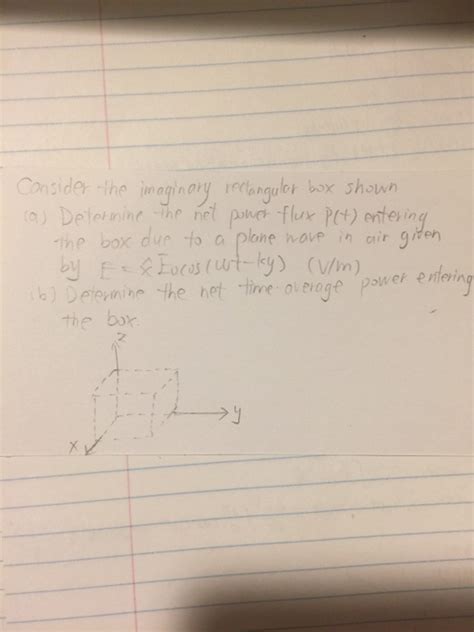 Consider the imaginary rectangular box shown
(a) Determine the net power flux P(t) entering
the box due to a plane wave in air given
by E = x̂ E₀cos(ωt-ky) (V/m)
(b) Determine the net time-average power entering
the box.
z
y
x